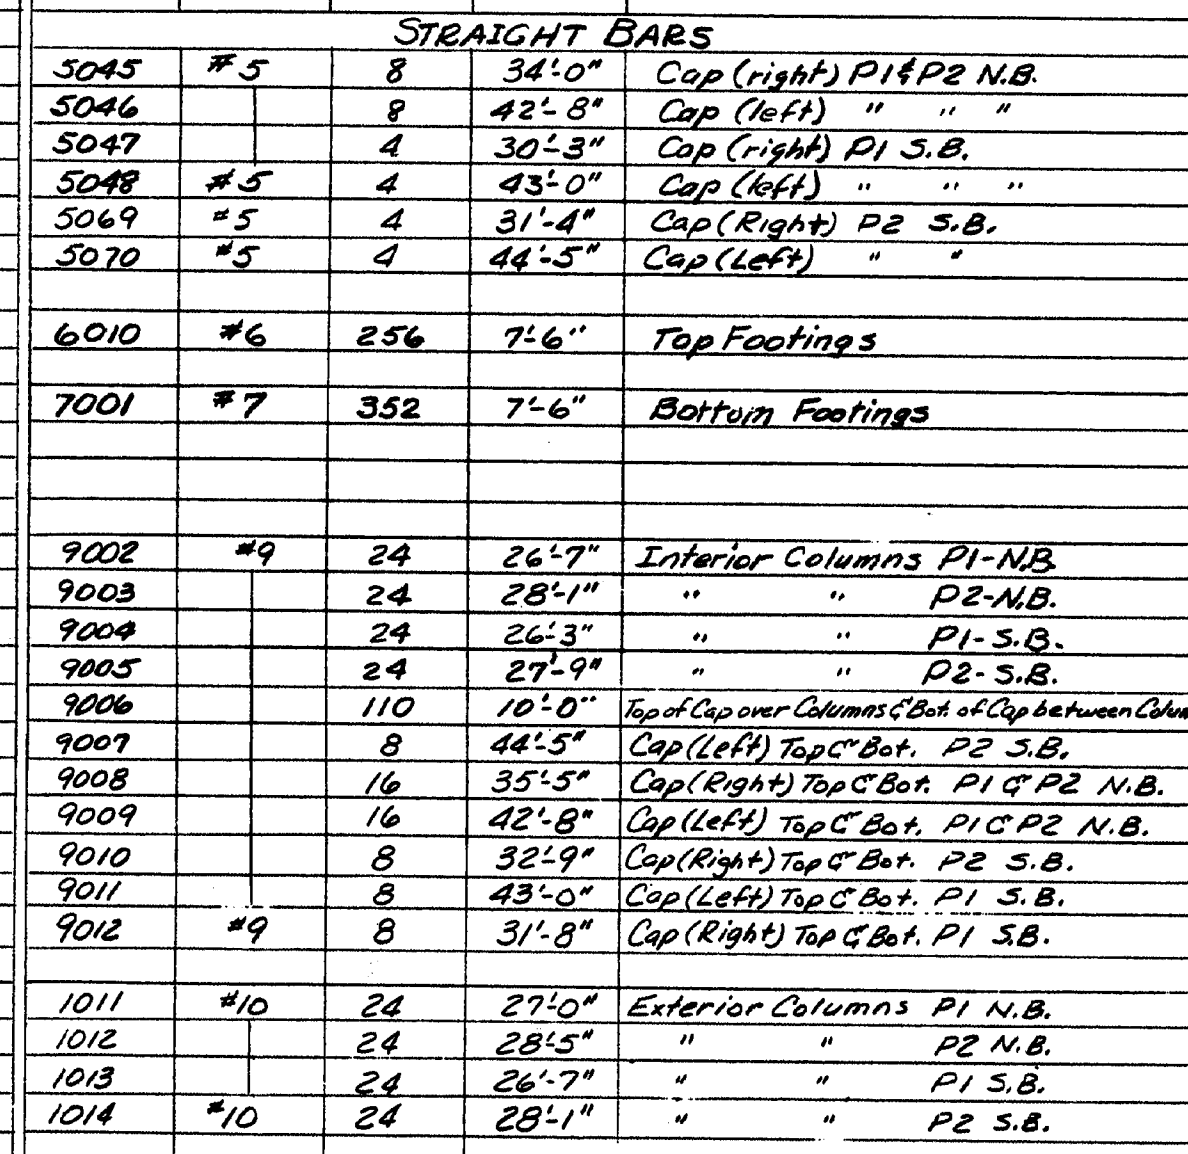 STRAIGHT BARS
5045 #5 8 34'-0" Cap (right) P1 & P2 N.B.
5046 8 42'-8" Cap (left) " " "
5047 4 30'-3" Cap (right) P1 S.B.
5048 #5 4 43'-0" Cap (left) " " "
5069 #5 4 31'-4" Cap (Right) P2 S.B.
5070 #5 4 44'-5" Cap (Left) " "
6010 #6 256 7'-6" Top Footings
7001 #7 352 7'-6" Bottom Footings
9002 #9 24 26'-7" Interior Columns P1-N.B.
9003 24 28'-1" " " P2-N.B.
9004 24 26'-3" " " P1-S.B.
9005 24 27'-9" " " P2-S.B.
9006 110 10'-0" Top of Cap over Columns & Bot. of Cap between Colum
9007 8 44'-5" Cap (Left) Top & Bot. P2 S.B.
9008 16 35'-5" Cap (Right) Top & Bot. P1 & P2 N.B.
9009 16 42'-8" Cap (Left) Top & Bot. P1 & P2 N.B.
9010 8 32'-9" Cap (Right) Top & Bot. P2 S.B.
9011 8 43'-0" Cap (Left) Top & Bot. P1 S.B.
9012 #9 8 31'-8" Cap (Right) Top & Bot. P1 S.B.
1011 #10 24 27'-0" Exterior Columns P1 N.B.
1012 24 28'-5" " " P2 N.B.
1013 24 26'-7" " " P1 S.B.
1014 #10 24 28'-1" " " P2 S.B.